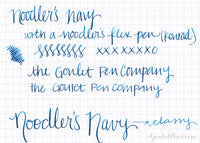 Noodler's Navy
with a noodler's flex pen (Konrad)
SSSSSSSS xxxxxxxo
the Goulet Pen Company
the Goulet Pen Company
Noodler's Navy ~ classy
GouletPens.com